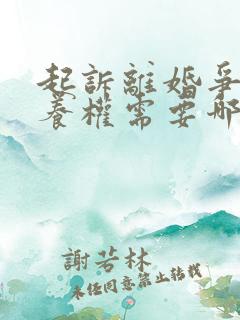 起訴離婚爭
養權需要哪
謝若林
未經同意禁止轉載